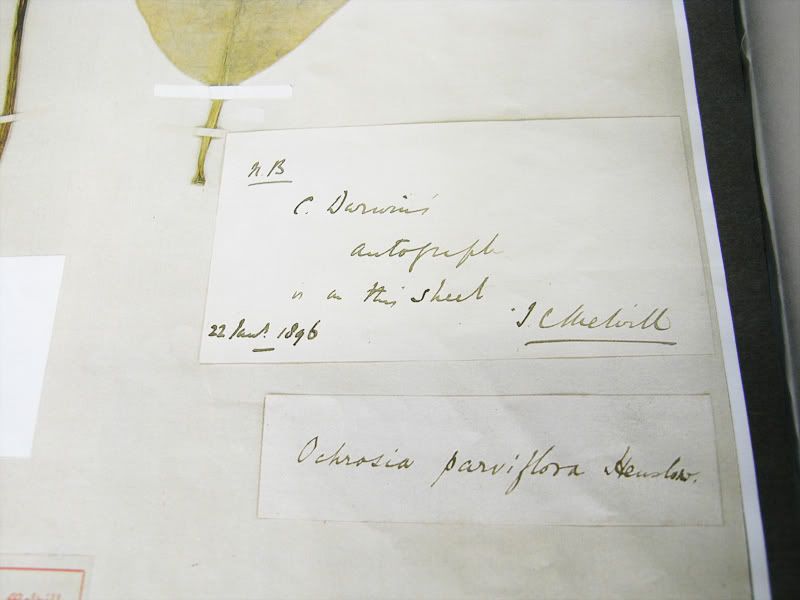 N.B
C. Darwin's
autograph
is on this sheet
J C Melvill
22 Jany. 1896
Ochrosia parviflora Henslow.
Melvill